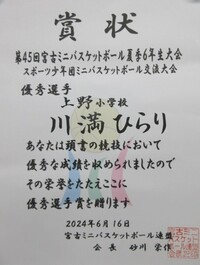 賞状
第45回宮古ミニバスケットボール夏季6年生大会
スポーツ少年団ミニバスケットボール交流大会
優秀選手
上野小学校
川満ひらり
あなたは頭書の競技において
優秀な成績を収められましたので
その栄誉をたたえここに
優秀選手賞を贈ります
2024年6月16日
宮古ミニバスケットボール連盟
会長 砂川 栄作